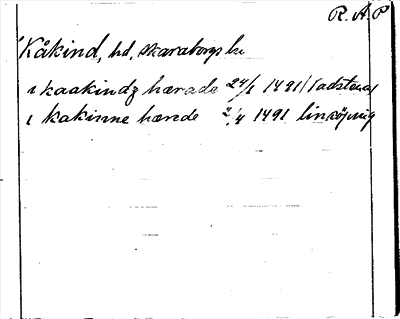 R.A.P
Kåkind, hd, Skaraborgs län
i kaakindz hærade 24/1 1491 Vadstena
i kakinne hærede 2/4 1491 Linköping